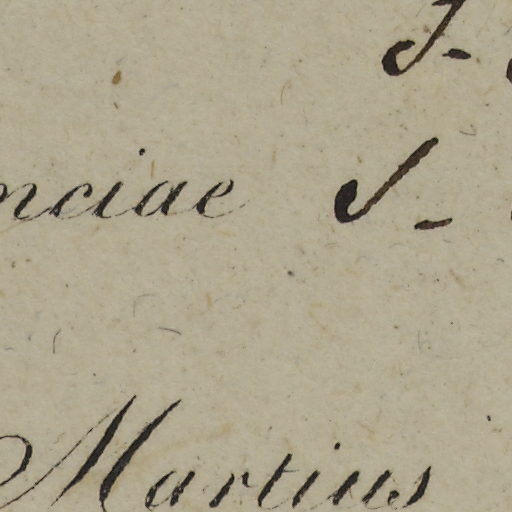 nciae S-
Martius